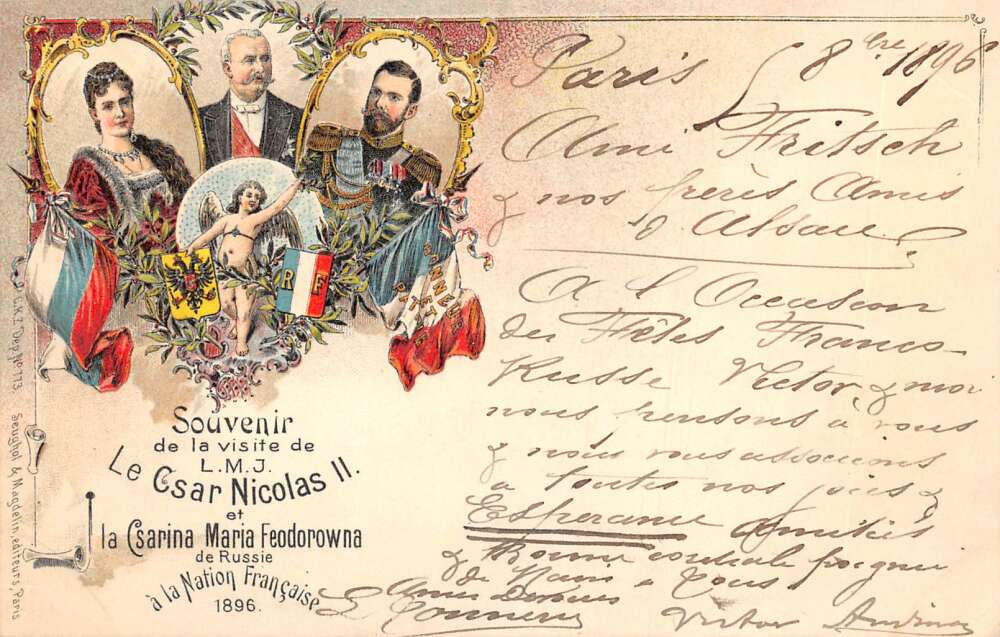 Souvenir
de la visite de
L.M.J.
Le Csar Nicolas II.
et
la Csarina Maria Feodorowna
de Russie
à la Nation Française
1896.
R F
HONNEUR
ET
Dep. No 113. Senghol & Magdelin, éditeurs, Paris
Paris 8bre 1896
Ami Fritsch
& nos frères Amis
d'Alsace
A l Occasion
des Fêtes Franco-
Russe Victor & moi
nous pensons à vous
& nous vous associons
a toutes nos joies &
Esperance Amitiés
& Bonne cordiale poignée
de Main a Tous
Victor